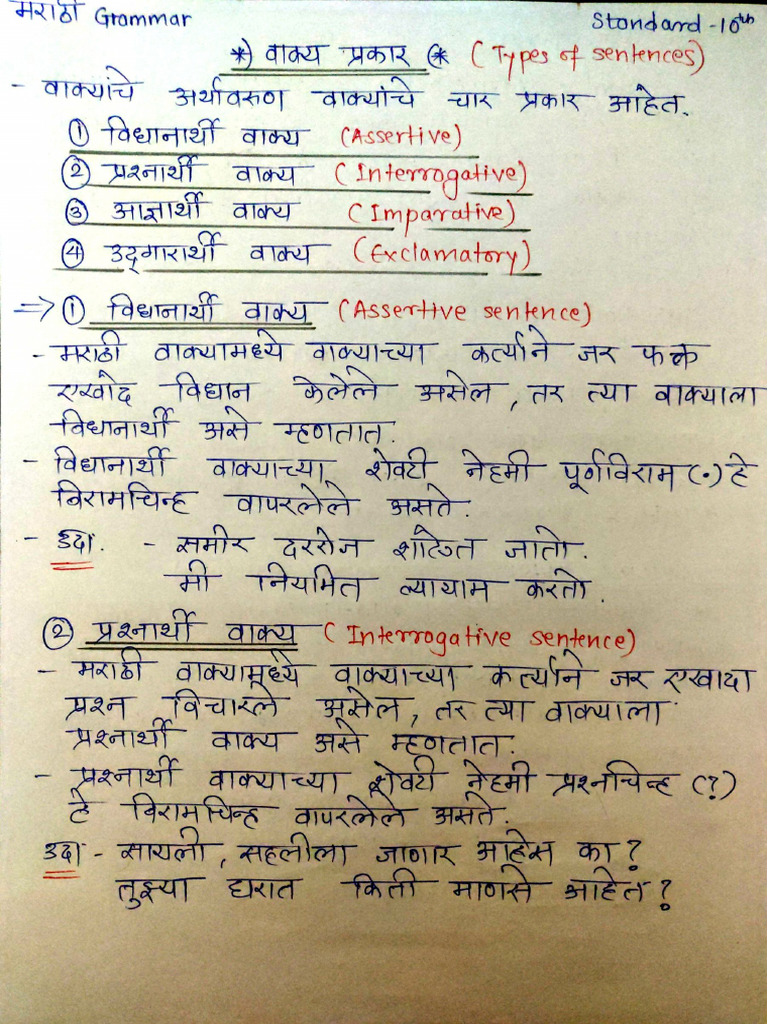 मराठी Grammar
Standard -10th
*) वाक्य प्रकार (* (Types of sentences)
- वाक्यांचे अर्थावरुण वाक्यांचे चार प्रकार आहेत.
① विधानार्थी वाक्य (Assertive)
② प्रश्नार्थी वाक्य (Interrogative)
③ आज्ञार्थी वाक्य (Imparative)
④ उद्गारार्थी वाक्य (Exclamatory)
⇒ ① विधानार्थी वाक्य (Assertive sentence)
- मराठी वाक्यामध्ये वाक्याच्या कर्त्याने जर फक्त
एखादे विधान केलेले असेल, तर त्या वाक्याला
विधानार्थी असे म्हणतात.
- विधानार्थी वाक्याच्या शेवटी नेहमी पूर्णविराम (.) हे
विरामचिन्ह वापरलेले असते.
- उदा. - समीर दररोज शाळेत जातो.
मी नियमित व्यायाम करतो.
② प्रश्नार्थी वाक्य (Interrogative sentence)
- मराठी वाक्यामध्ये वाक्याच्या कर्त्याने जर एखादा
प्रश्न विचारले असेल, तर त्या वाक्याला
प्रश्नार्थी वाक्य असे म्हणतात.
- प्रश्नार्थी वाक्याच्या शेवटी नेहमी प्रश्नचिन्ह (?)
हे विरामचिन्ह वापरलेले असते.
उदा - सायली, सहलीला जाणार आहेस का?
तुझ्या घरात किती माणसे आहेत?